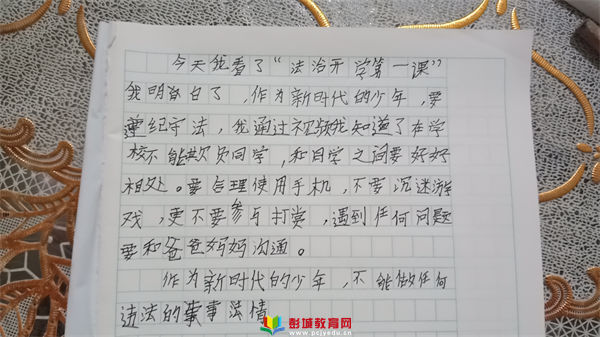 今天我看了“法治开学第一课”
我明白了，作为新时代的少年，要
遵纪守法，我通过视频我知道了在学
校不能欺负同学，和同学之间要好好
相处。要合理使用手机，不要沉迷游
戏，更不要参与打赏，遇到任何问题
要和爸爸妈妈沟通。
作为新时代的少年，不能做任何
违法的事情
彭城教育网
www.pcjyedu.cn